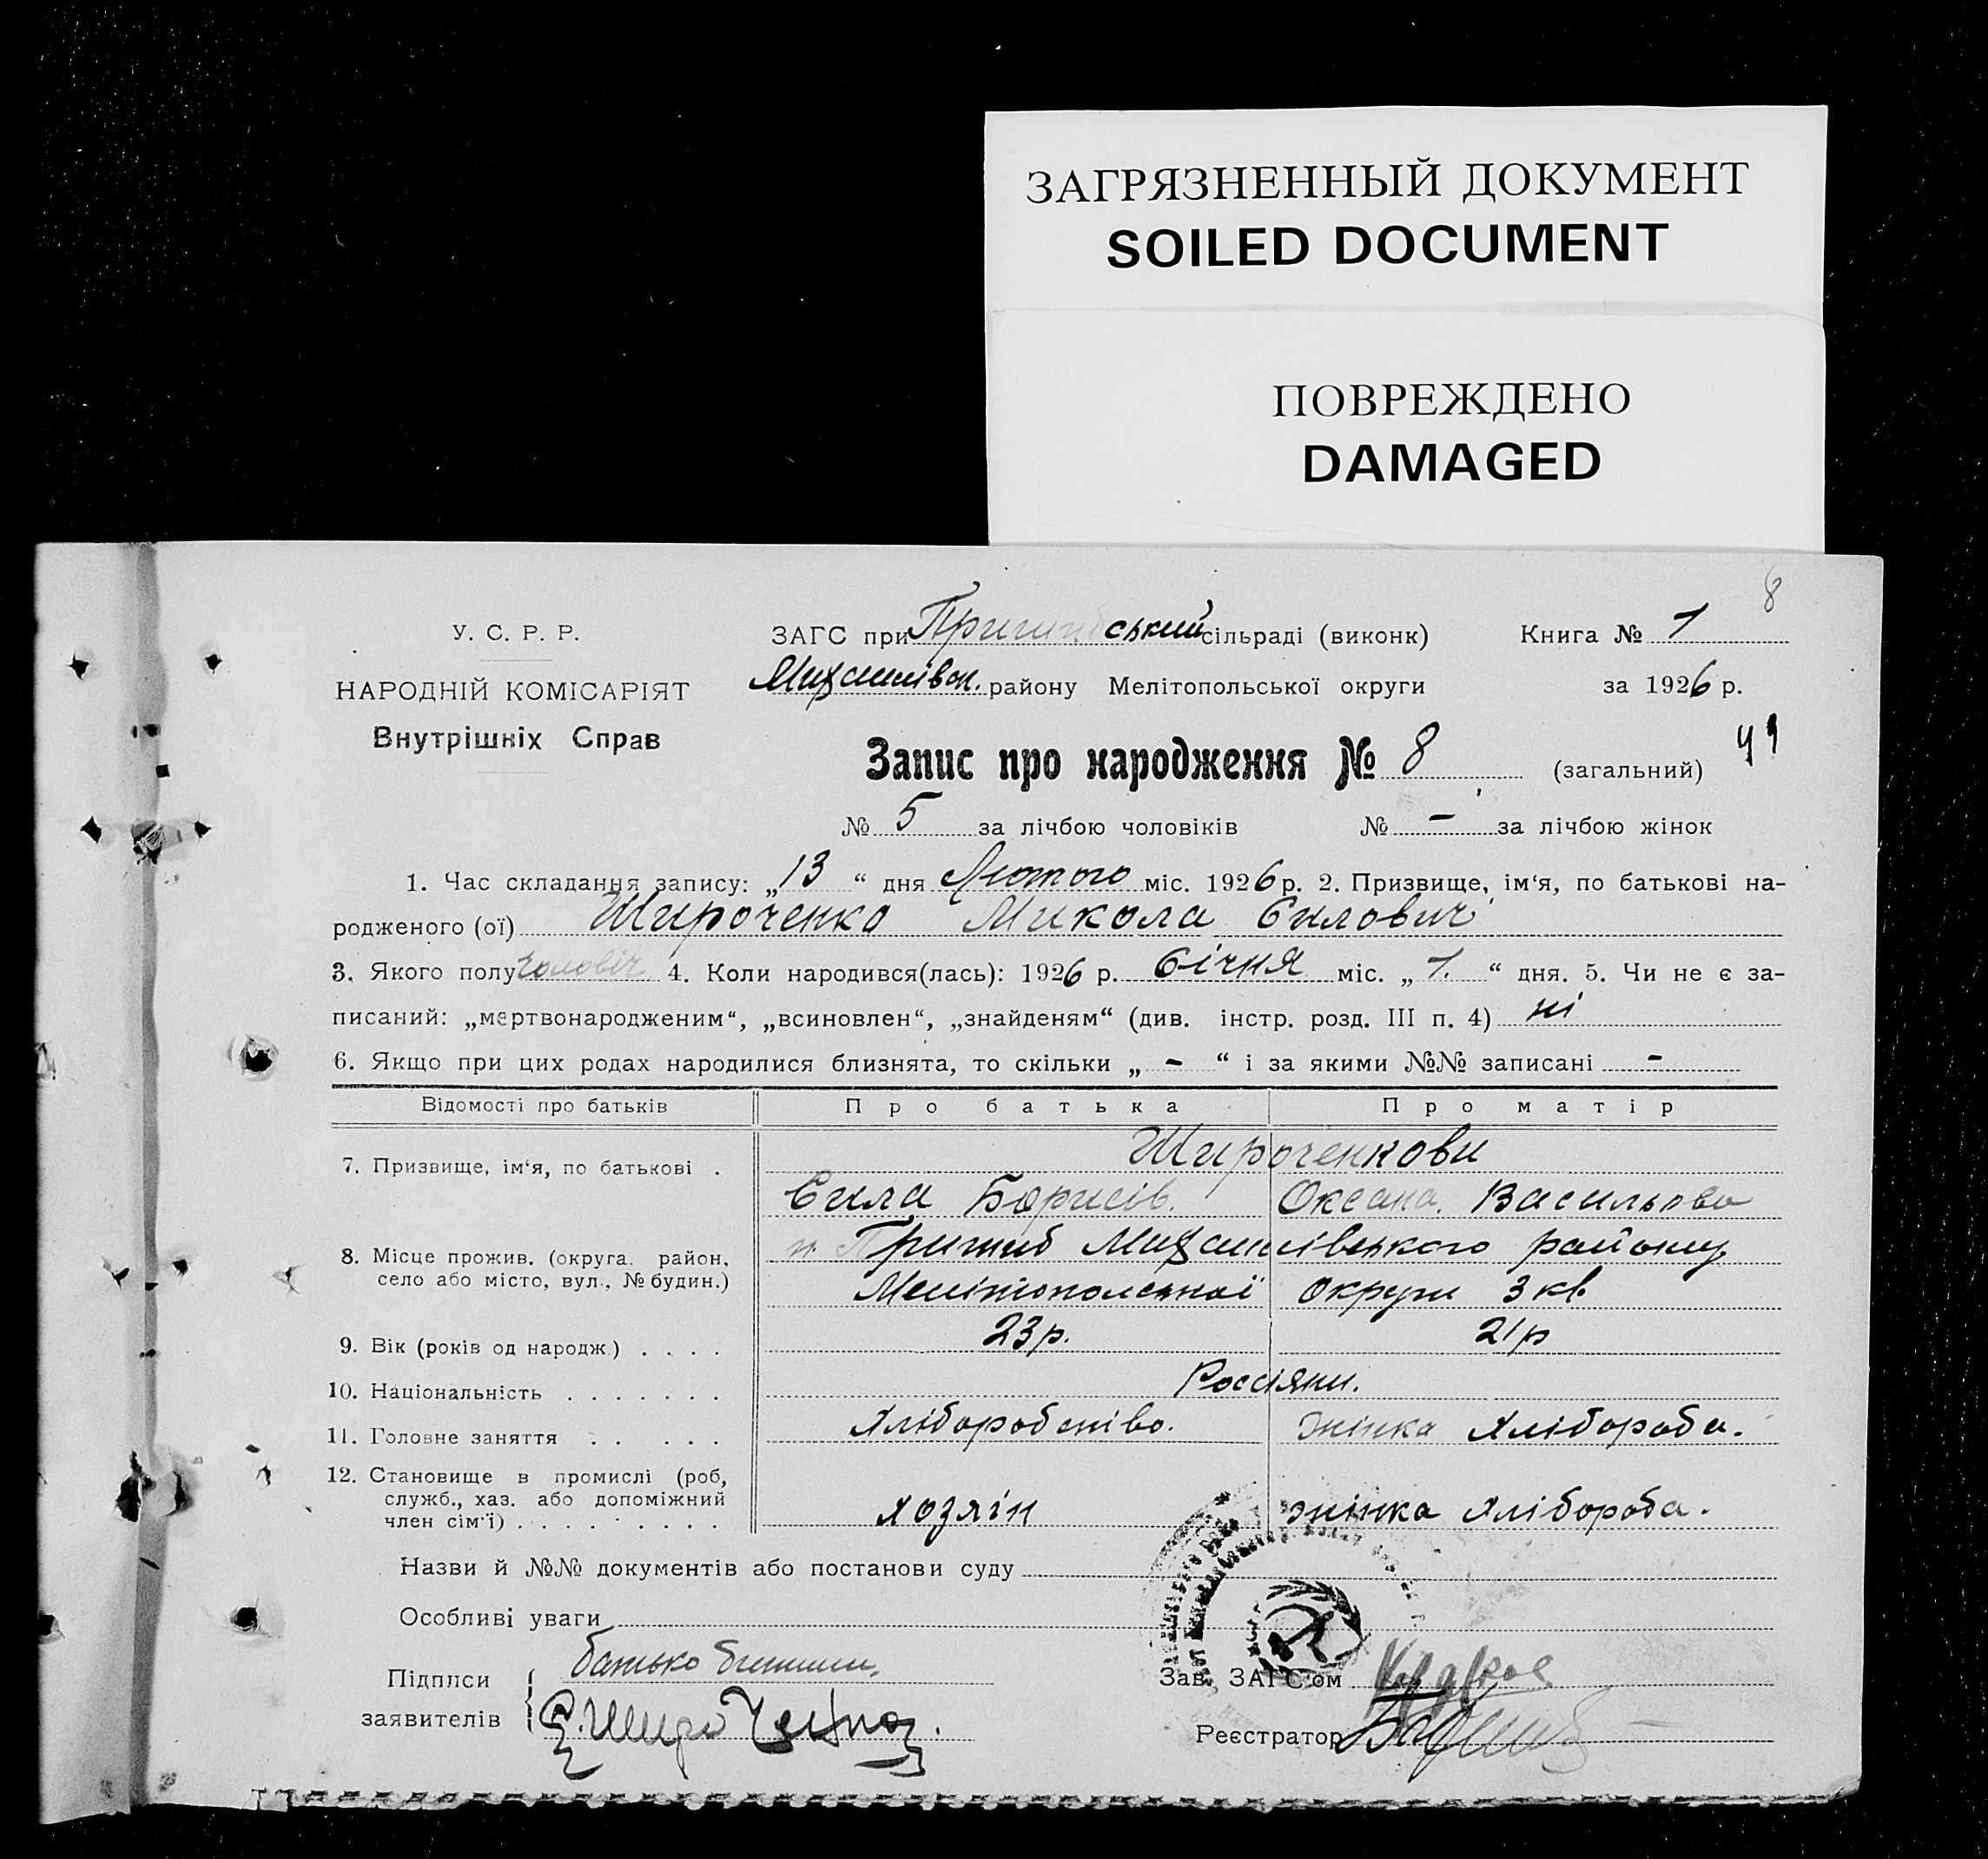 ЗАГРЯЗНЕННЫЙ ДОКУМЕНТ
SOILED DOCUMENT
ПОВРЕЖДЕНО
DAMAGED
8
У. С. Р. Р.
НАРОДНІЙ КОМІСАРІЯТ
Внутрішніх Справ
ЗАГС при Пришибський сільраді (виконк)
Книга № 1
Михайлівськ. району Мелітопольської округи
за 1926 р.
Запис про народження № 8 (загальний)
№ 5 за лічбою чоловіків № - за лічбою жінок
1. Час складання запису: „13“ дня Лютого міс. 1926 р. 2. Призвище, ім'я, по батькові на-
родженого (ої) Широченко Микола Силович
3. Якого полу чоловіч 4. Коли народився(лась): 1926 р. Січня міс. „1.“ дня. 5. Чи не є за-
писаний: „мертвонародженим“, „всиновлен“, „знайденям“ (див. інстр. розд. III п. 4) ні
6. Якщо при цих родах народилися близнята, то скільки „ - “ і за якими №№ записані -
Відомості про батьків Про батька Про матір
Широченкови
7. Призвище, ім'я, по батькові .
Сила Борисів. Оксана Васильова
8. Місце прожив. (округа. район, село або місто, вул., № будин.)
Пришиб Михайлівського району
Мелітопольської Округи 3 кв
9. Вік (років од народж.) . . . . 23 р. 21 р
10. Національність . . . . . . . Россіяни.
11. Головне заняття . . . . . Хліборобство. Жінка Хлібороба.
12. Становище в промислі (роб,
служб., хаз. або допоміжний
член сім'ї) . . . . . . . . . хозяїн жінка хлібороба.
Назви й №№ документів або постанови суду
Особливі уваги
Підписи
батько
заявителів
С. Широченко
Зав. ЗАГС'ом
Реєстратор